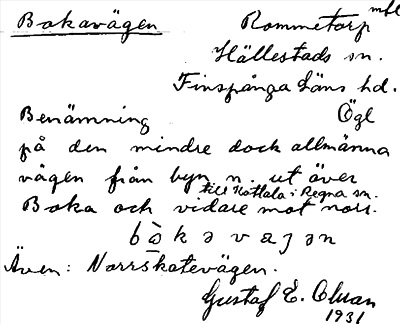 Bokavägen Rommetorp mfl
Hällestads sn.
Finspånga Läns hd.
Benämning Ögl
på den mindre dock allmänna
vägen från byn n. ut över
till Kottala i Regna sn.
Boka och vidare mot norr.
Även: Norrskatevägen.
Gustaf E.
1931